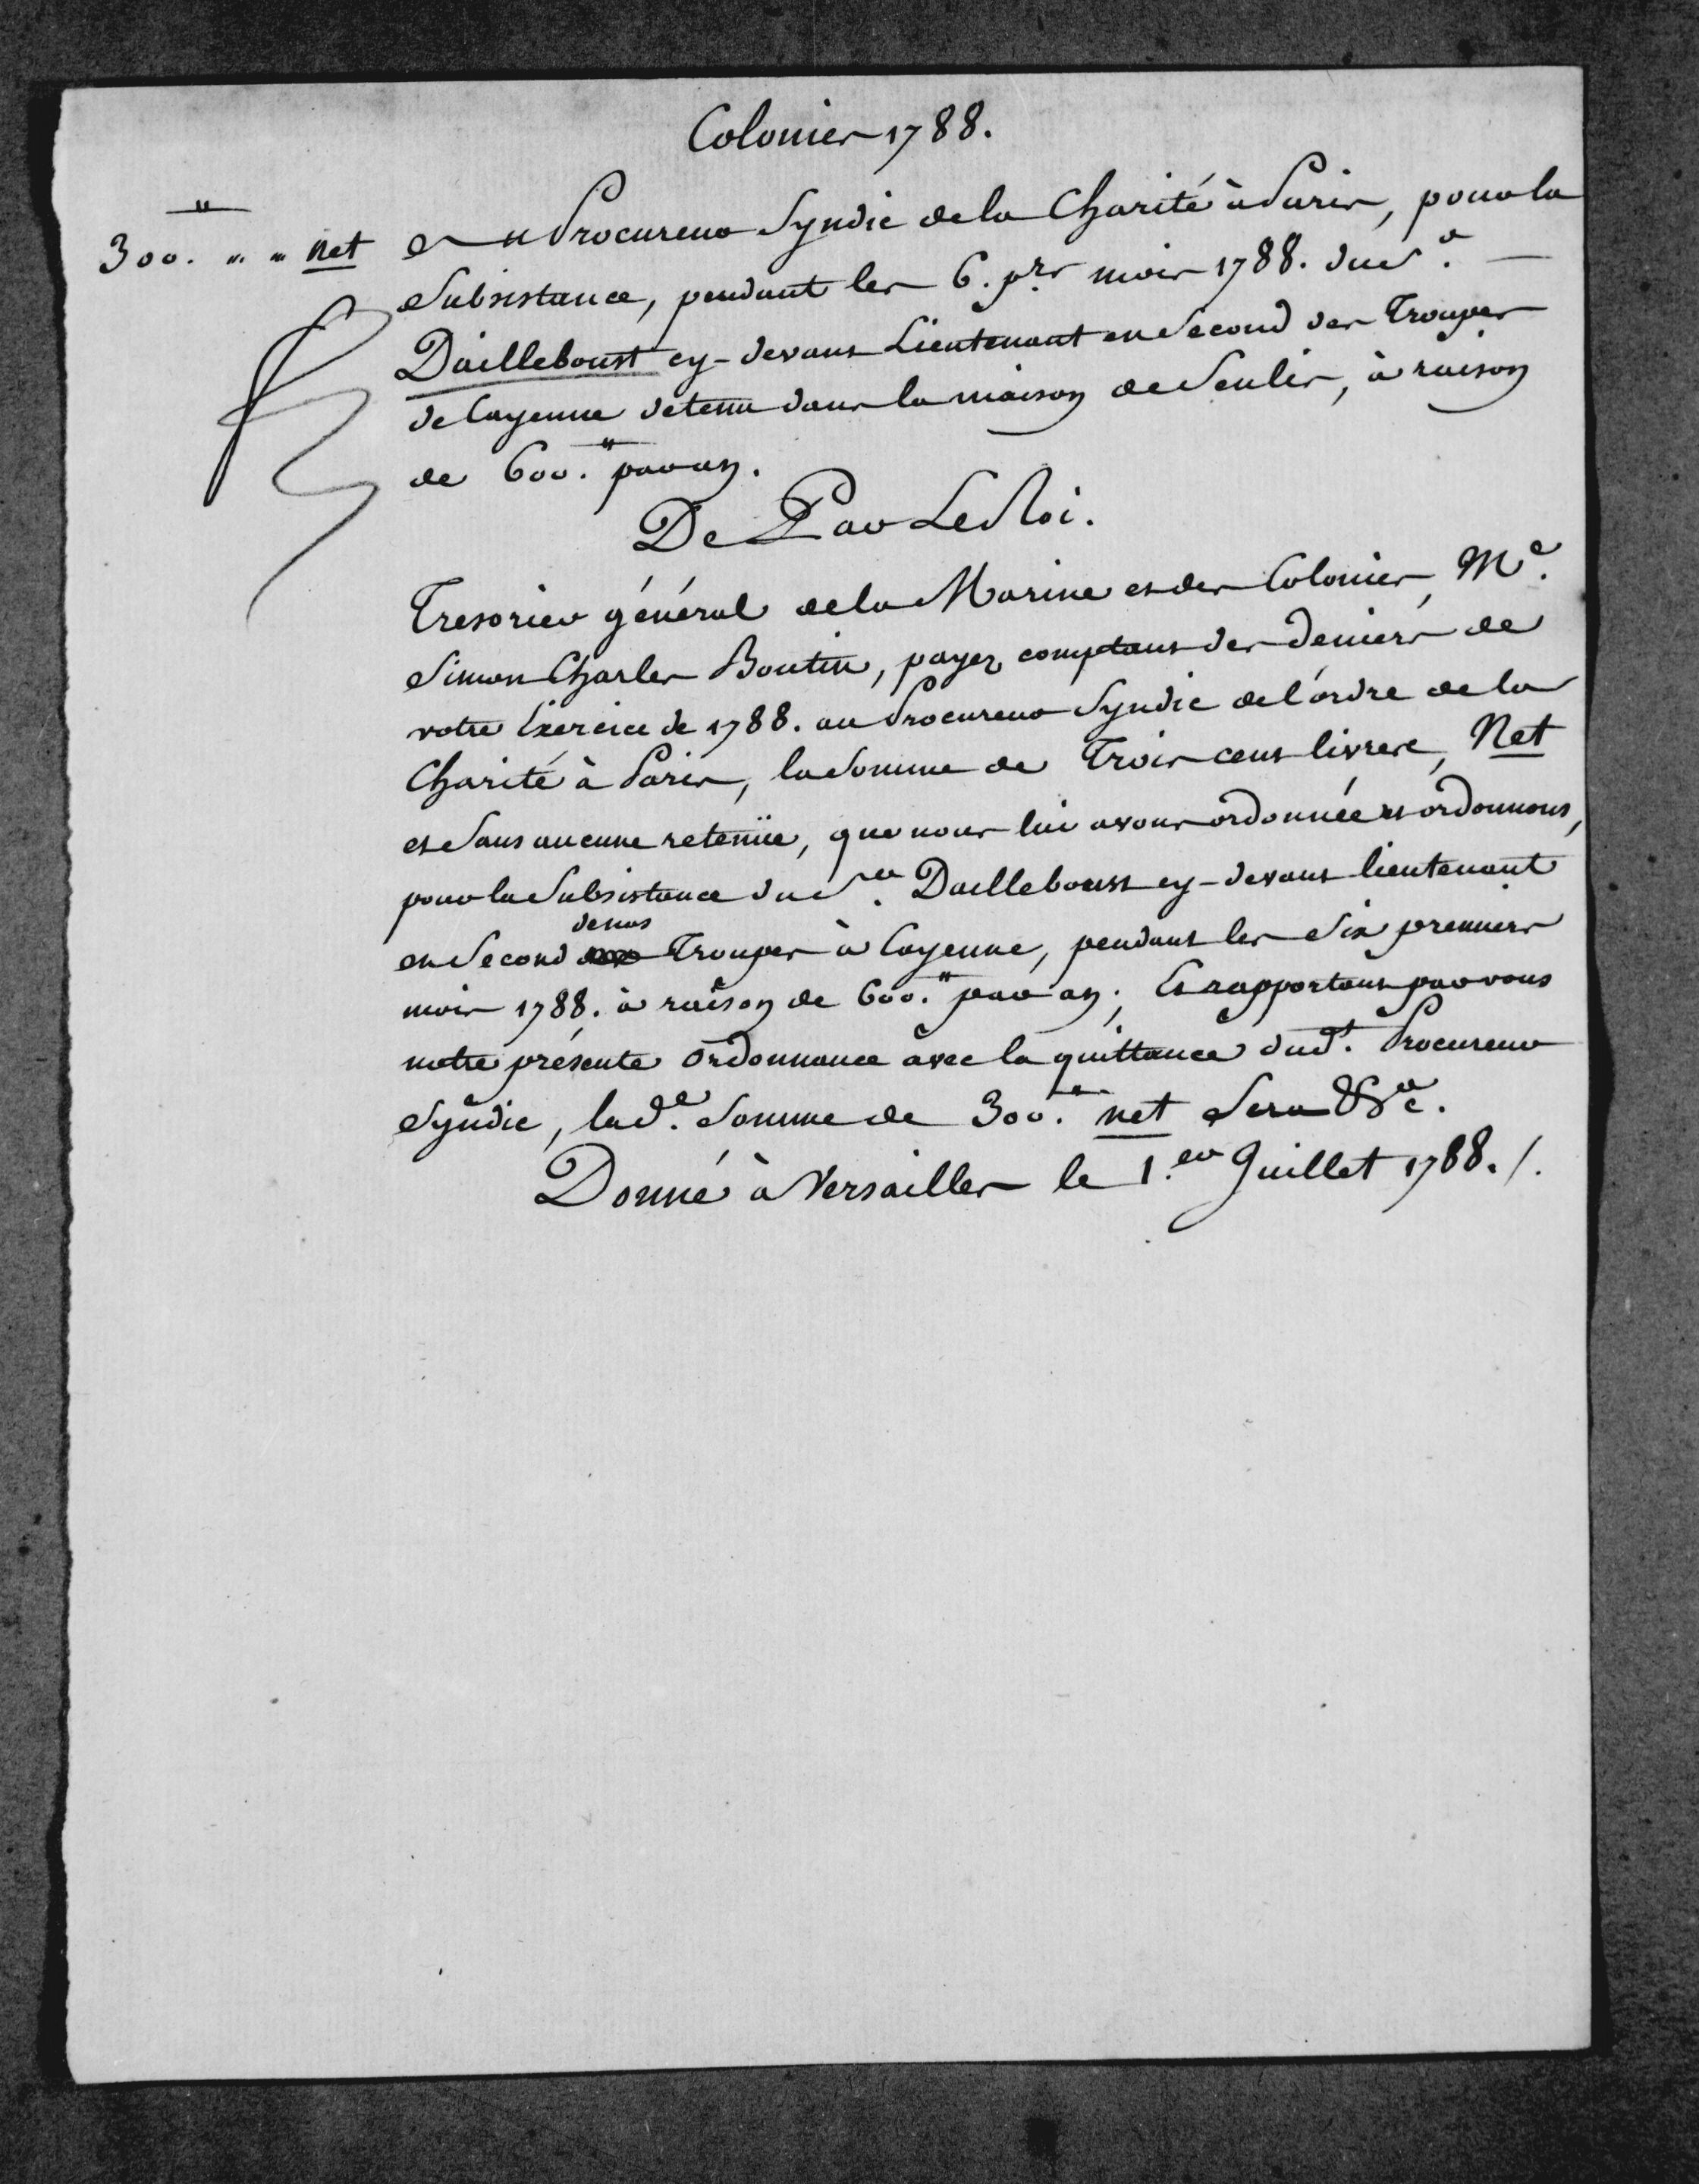 Colonies 1788.
300.₶ " " net Au Procureur Syndic de la Charité à Paris, pour la
Subsistance, pendant les 6. prs mois 1788. du Sr.
Dailleboust cy-devant Lieutenant en Second des Troupes
de Cayenne detenu dans la maison de Senlis, à raison
de 600.₶ par an.
De Par Le Roi.
Tresorier général de la Marine et des Colonies, Me.
Simon Charles Boutin, payez comptant des deniers de
votre Exercice de 1788. au Procureur Syndic de l'ordre de la
Charité à Paris, la Somme de Trois cent livres, Net
et Sans aucune retenüe, que nous lui avons ordonnée et ordonnons,
pour la Subsistance du Sr. Dailleboust cy-devant lieutenant
en Second de nos Troupes à Cayenne, pendant les Six premiers
mois 1788. à raison de 600.₶ par an; Et rapportant par vous
notre présente Ordonnance avec la quittance dud. Procureur
Syndic, lad.e Somme de 300.₶ net Sera &c.a
Donné à Versailles le 1.er Juillet 1788. /.